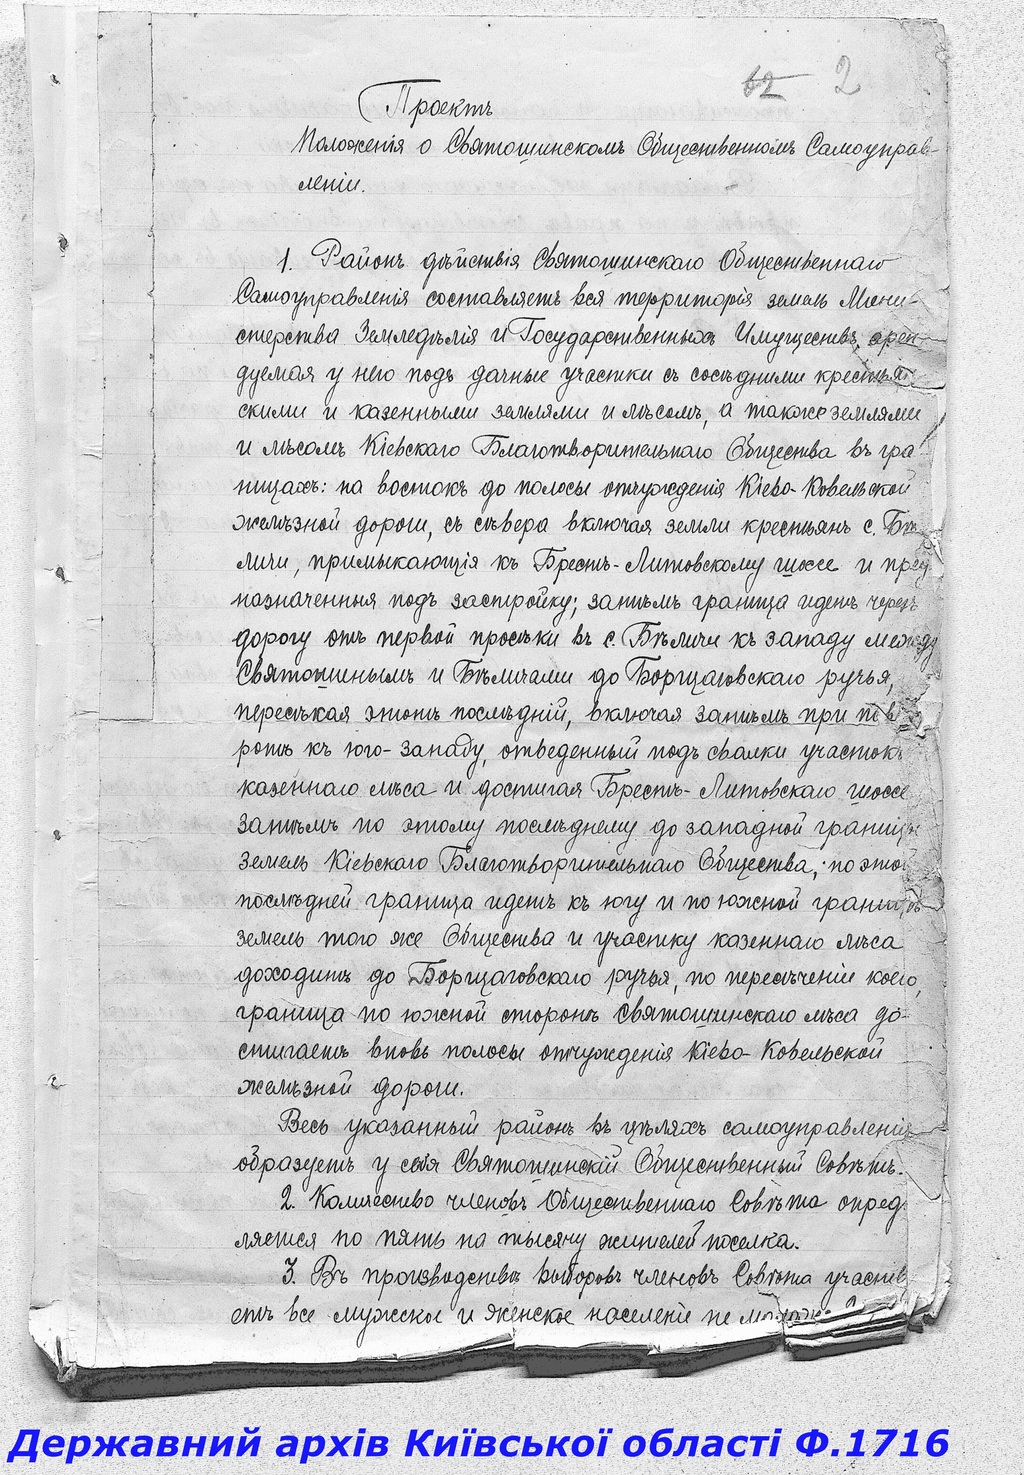 62 2
Проектъ
Положенія о Святошинскомъ Общественномъ Самоуправ-
леніи.
1. Районъ дѣйствія Святошинскаго Общественнаго
Самоуправленія составляетъ вся территорія земель Мини-
стерства Земледѣлія и Государственныхъ Имуществъ, арен-
дуемая у него подъ дачные участки съ сосѣдними крестьян
скими и казенными землями и лѣсомъ, а также землями
и лѣсомъ Кіевскаго Благотворительнаго Общества въ гра
ницахъ: на востокъ до полосы отчужденія Кіево-Ковельской
желѣзной дороги, съ сѣвера включая земли крестьянъ с. Бѣ
личи, примыкающія къ Брестъ-Литовскому шоссе и пред
назначенныя подъ застройку; затѣмъ граница идетъ черезъ
дорогу отъ первой просѣки въ с. Бѣличи къ западу между
Святошинымъ и Бѣличами до Борщаговскаго ручья,
пересѣкая этотъ послѣдній, включая затѣмъ при пово
ротѣ къ юго-западу, отведенный подъ свалки участокъ
казеннаго лѣса и достигая Брестъ-Литовскаго шоссе
затѣмъ по этому послѣднему до западной границы
земель Кіевскаго Благотворительнаго Общества; по этой
послѣдней граница идетъ къ югу и по южной границѣ
земель того же Общества и участку казеннаго лѣса
доходитъ до Борщаговскаго ручья, по пересѣченіи коего,
граница по южной сторонѣ Святошинскаго лѣса до-
стигаетъ вновь полосы отчужденія Кіево-Ковельской
желѣзной дороги.
Весь указанный районъ въ цѣляхъ самоуправленія
образуетъ у себя Святошинскій Общественный Совѣтъ.
2. Количество членовъ Общественнаго Совѣта опред
ляется по пять на тысячу жителей поселка.
3. Въ производствѣ выборовъ членовъ Совѣта участву
етъ все мужское и женское населеніе не моложе
Державний архів Київської області Ф.1716